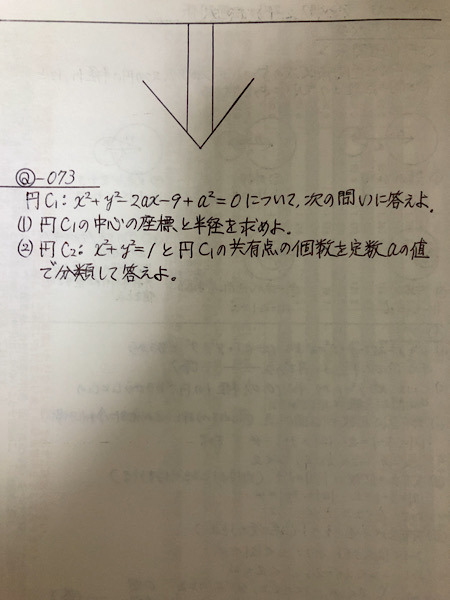 Q-073
円C₁: x²+y²-2ax-9+a²=0について、次の問いに答えよ。
(1) 円C₁の中心の座標と半径を求めよ。
(2) 円C₂: x²+y²=1と円C₁の共有点の個数を定数aの値
で分類して答えよ。